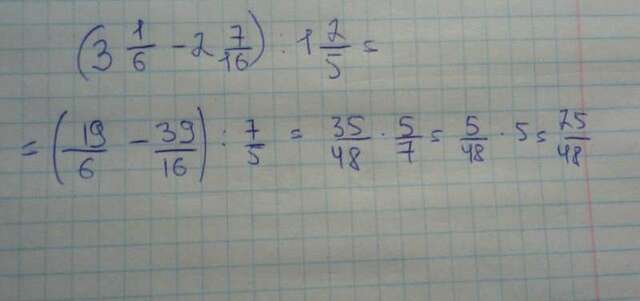 (3 1/6 - 2 7/16) : 1 2/5 =
= (19/6 - 39/16) : 7/5 = 35/48 · 5/7 = 5/48 · 5 = 25/48